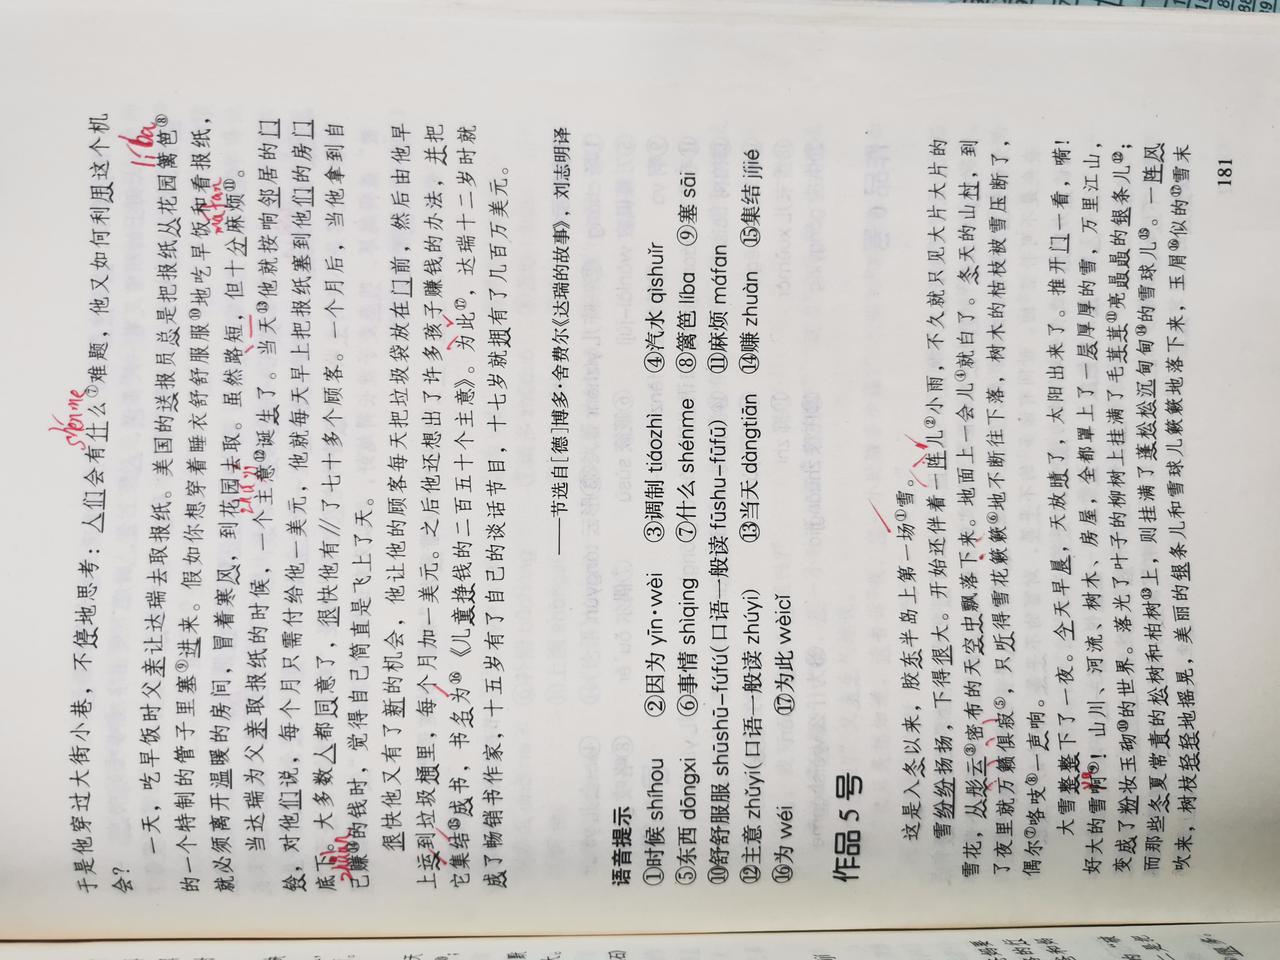 于是他穿过大街小巷，不停地思考：人们会有什么①难题，他又如何利用这个机
shénme
会？
一天，吃早饭时父亲让达瑞去取报纸。美国的送报员总是把报纸从花园篱笆⑧
líba
的一个特制的管子里塞⑨进来。假如你想穿着睡衣舒舒服服⑩地吃早饭和看报纸，
就必须离开温暖的房间，冒着寒风，到花园去取。虽然路短，但十分麻烦⑪。
máfan
当达瑞为父亲取报纸的时候，一个主意⑫诞生了。当天⑬他就按响邻居的门
zhúyi
铃，对他们说，每个月只需付给他一美元，他就每天早上把报纸塞到他们的房门
底下。大多数人都同意了，很快他有∥了七十多个顾客。一个月后，当他拿到自
己赚⑭的钱时，觉得自己简直是飞上了天。
zhuàn
很快他又有了新的机会，他让他的顾客每天把垃圾袋放在门前，然后由他早
上运到垃圾桶里，每个月加一美元。之后他还想出了许多孩子赚钱的办法，并把
它集结⑮成书，书名为⑯《儿童挣钱的二百五十个主意》。为此⑰，达瑞十二岁时就
成了畅销书作家，十五岁有了自己的谈话节目，十七岁就拥有了几百万美元。
——节选自[德]博多·舍费尔《达瑞的故事》，刘志明译
语音提示
①时候 shíhou ②因为 yīn·wèi ③调制 tiáozhì ④汽水 qìshuǐr
⑤东西 dōngxi ⑥事情 shìqing ⑦什么 shénme ⑧篱笆 líba ⑨塞 sāi
⑩舒舒服服 shūshū-fúfú(口语一般读 fūshu-fūfū) ⑪麻烦 máfan
⑫主意 zhǔyi(口语一般读 zhúyi) ⑬当天 dàngtiān ⑭赚 zhuàn ⑮集结 jíjié
⑯为 wéi ⑰为此 wèicǐ
作品 5 号
这是入冬以来，胶东半岛上第一场①雪。
雪纷纷扬扬，下得很大。开始还伴着一阵儿②小雨，不久就只见大片大片的
雪花，从彤云③密布的天空中飘落下来。地面上一会儿④就白了。冬天的山村，到
了夜里就万籁俱寂⑤，只听得雪花簌簌⑥地不断往下落，树木的枯枝被雪压断了，
偶尔⑦咯吱⑧一声响。
大雪整整下了一夜。今天早晨，天放晴了，太阳出来了。推开门一看，嗬！
好大的雪啊⑨！山川、河流、树木、房屋，全都罩上了一层厚厚的雪，万里江山，
ya
变成了粉妆玉砌⑩的世界。落光了叶子的柳树上挂满了毛茸茸⑪亮晶晶的银条儿⑫；
而那些冬夏常青的松树和柏树⑬上，则挂满了蓬松松沉甸甸⑭的雪球儿⑮。一阵风
吹来，树枝轻轻地摇晃，美丽的银条儿和雪球儿簌簌地落下来，玉屑⑯似的⑰雪末
181